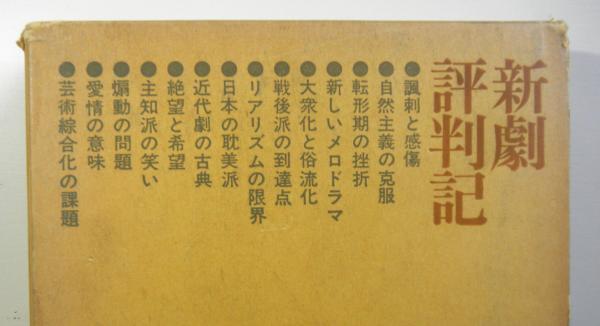 新劇
評判記
●諷刺と感傷
●自然主義の克服
●転形期の挫折
●新しいメロドラマ
●大衆化と俗流化
●戦後派の到達点
●リアリズムの限界
●日本の耽美派
●近代劇の古典
●絶望と希望
●主知派の笑い
●煽動の問題
●愛情の意味
●芸術綜合化の課題